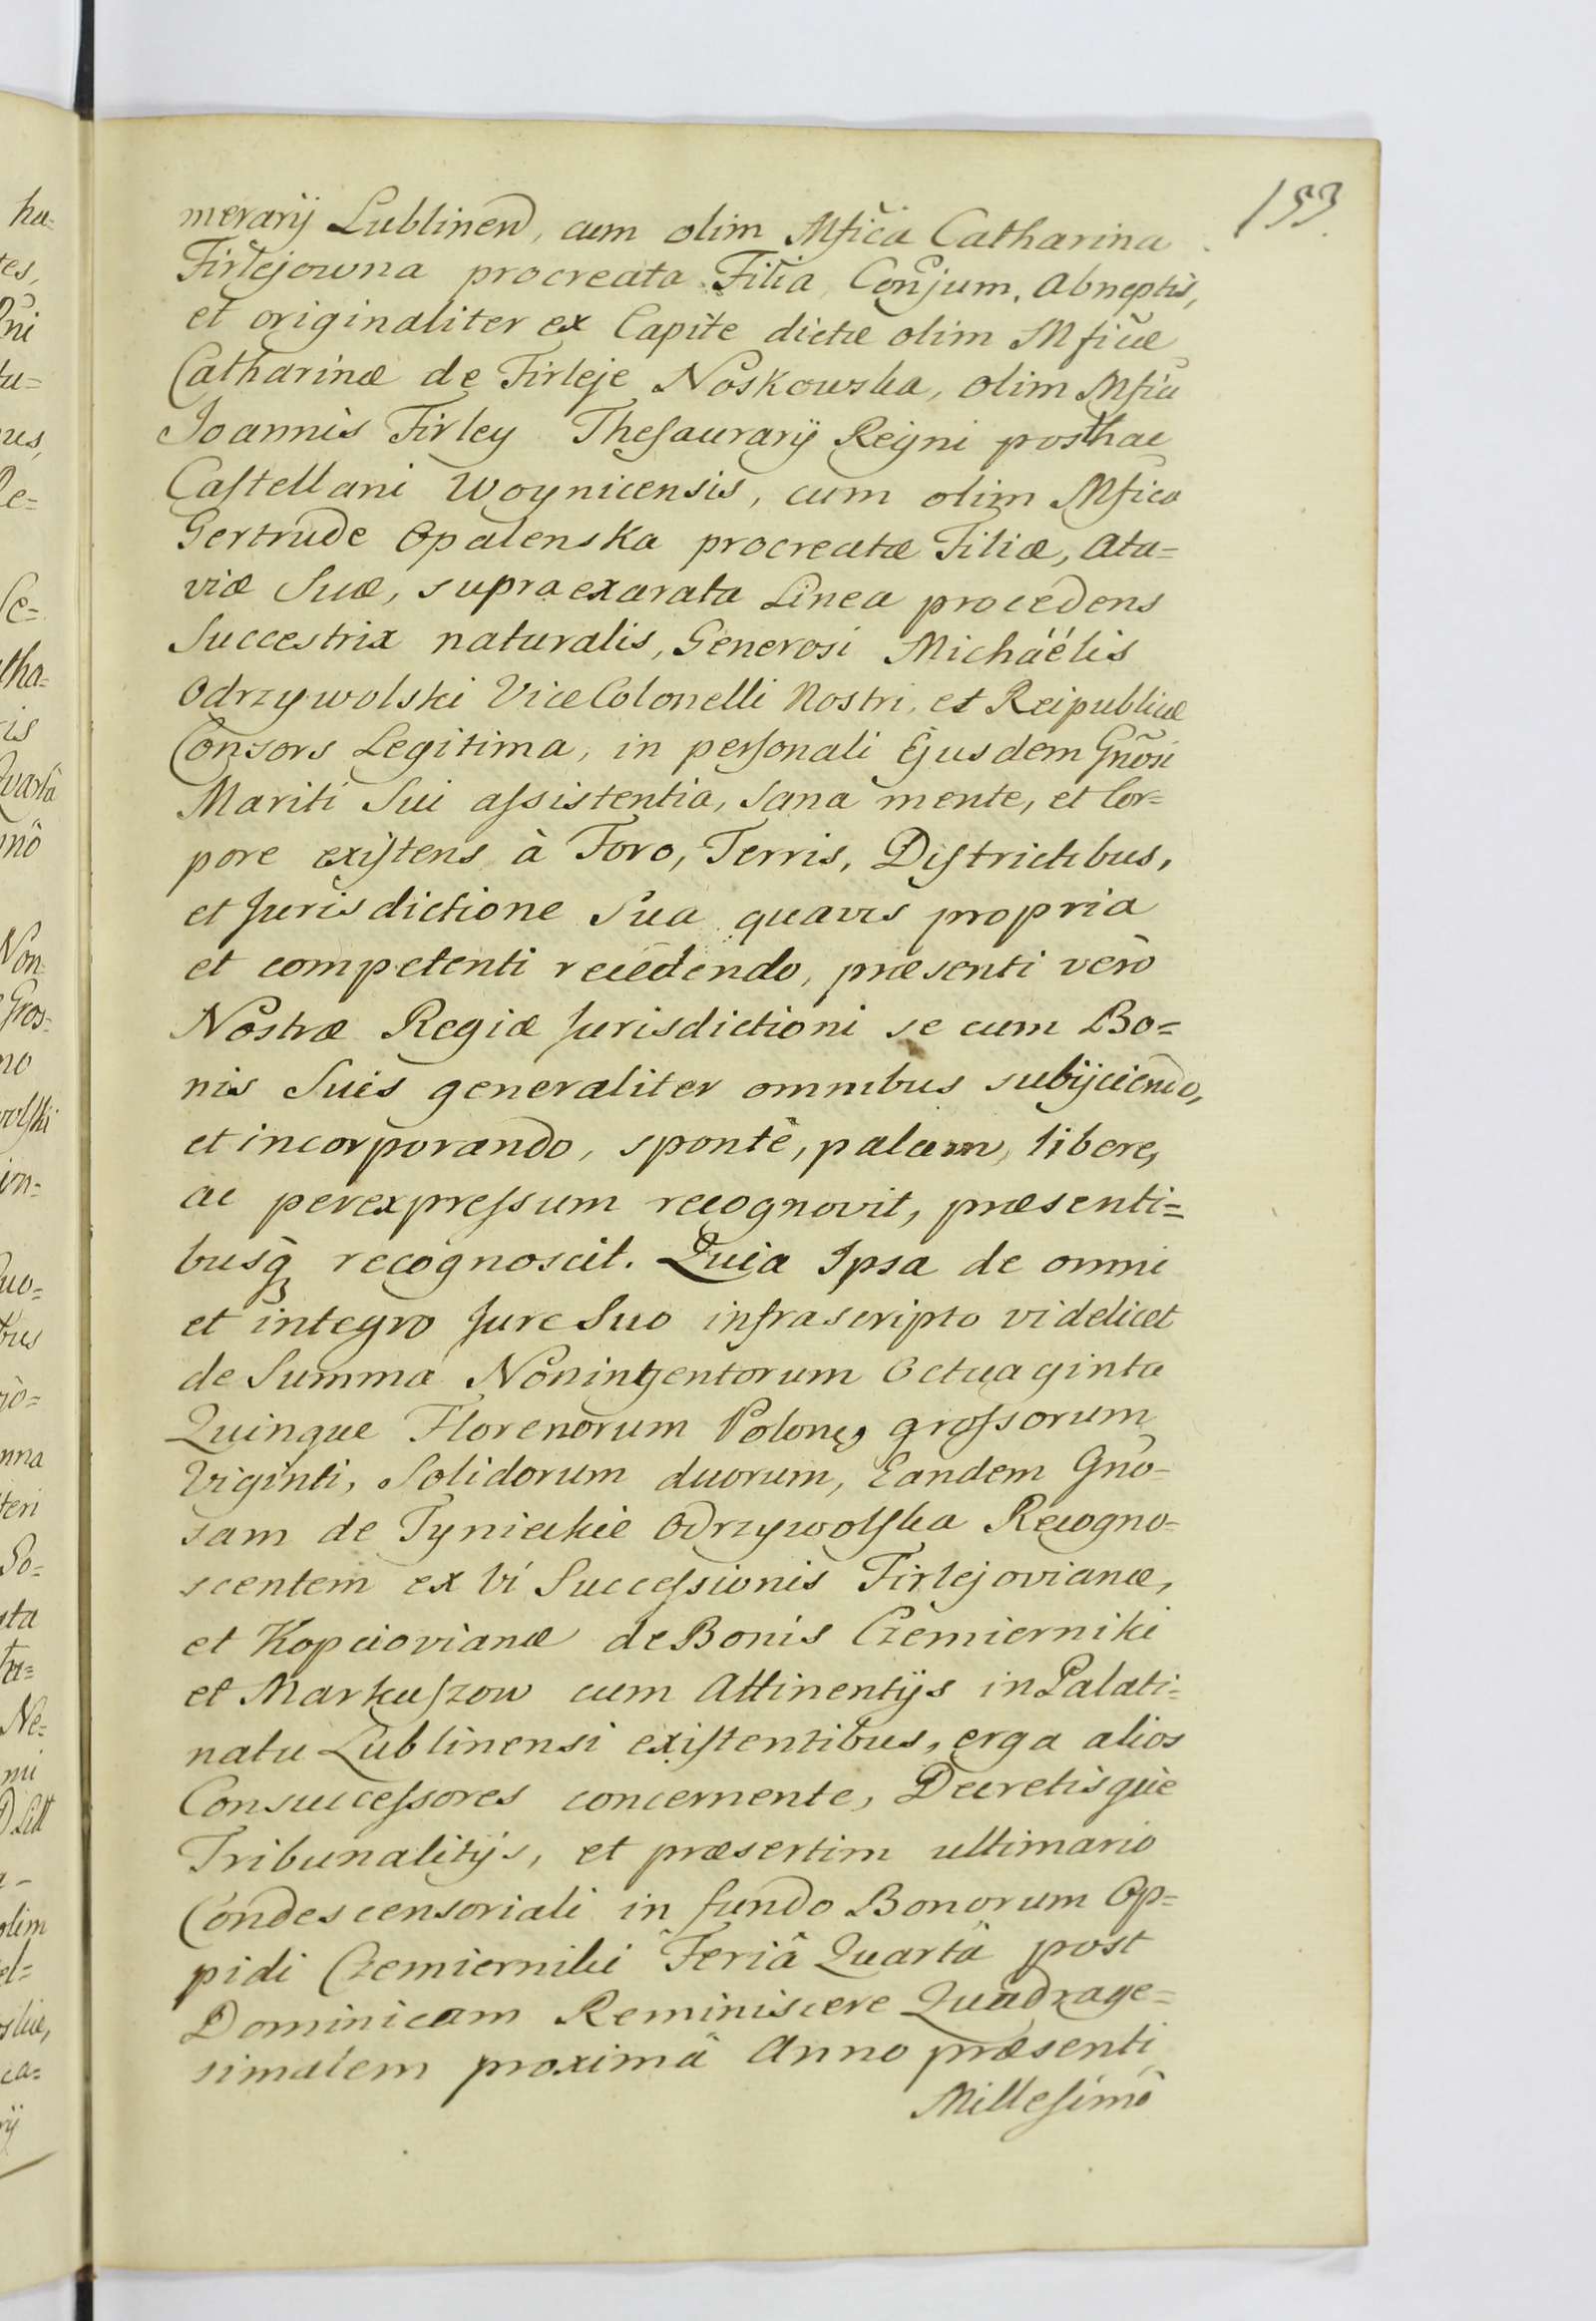 153.
merarij Lublinen, cum olim Mfića Catharina
Firlejowna procreata Filia, Conjum, Abneptis,
et originaliter ex Capite dictæ olim Mficæ
Catharinæ de Firleje Noskowska, olim Mfici
Joannis Firley Thesaurarij Regni posthac
Castellani Woynicensis, cum olim Mfica
Gertrude Opalenska procreatæ Filiæ, Ata=
viæ Suæ, supraexarata Linea procedens
Succestrix naturalis, Generosi Michaélis
Odrzywolski ViceColonelli Nostri, et Reipublicæ
Consors Legitima, in personali Ejusdem Gnõsi
Mariti Sui assistentia, sana mente, et Cor=
pore existens à Foro, Terris, Districtibus,
et Jurisdictione Sua quavis propria
et competenti recedendo, præsenti verò
Nostræ Regiæ Jurisdictioni se cum Bo=
nis Suis generaliter omnibus subijciendo,
et incorporando, spontè, palam, libere,
ac perexpressum recognovit, præsenti=
busq̀ recognoscit. Quia Ipsa de omni
et integro Jure Suo infrascripto videlicet
de Summa Noningentorum Octuaginta
Quinque Florenorum Polon, grossorum
Viginti, Solidorum duorum, Eandem Gno=
sam de Tynieckie Odrzywolska Recogno=
scentem ex Vi Successionis Firlejovianæ,
et Kopciovianæ de Bonis Czemierniki
et Markuszow cum Attinentijs in Palati=
natu Lublinensi existentibus, erga alios
Consuccessores concernente, Decretisque
Tribunalitijs, et præsertim ultimario
Condescensoriali in fundo Bonorum Op=
pidi Czemierniki Feriâ Quartâ post
Dominicam Reminiscere Quadrage=
simalem proximâ Anno præsenti
Millesimô